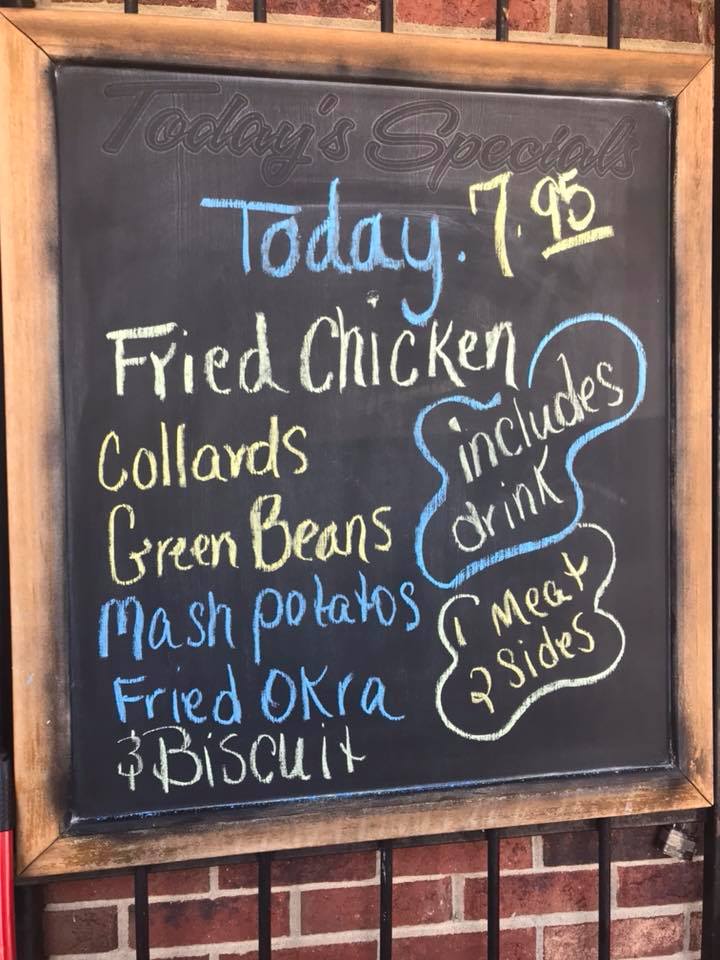 Today's Specials
Today. 7.95
Fried Chicken
includes
drink
Collards
Green Beans
Mash potatos
1 Meat
2 Sides
Fried OKra
& Biscuit